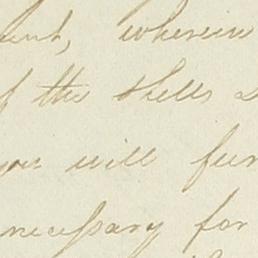 ent, wherein
of the Shells
you will fur
necessary for